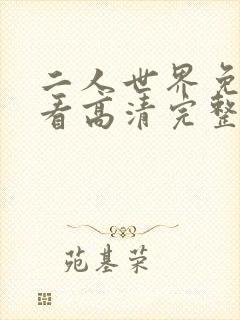 二人世界免
看高清完整
苑基荣